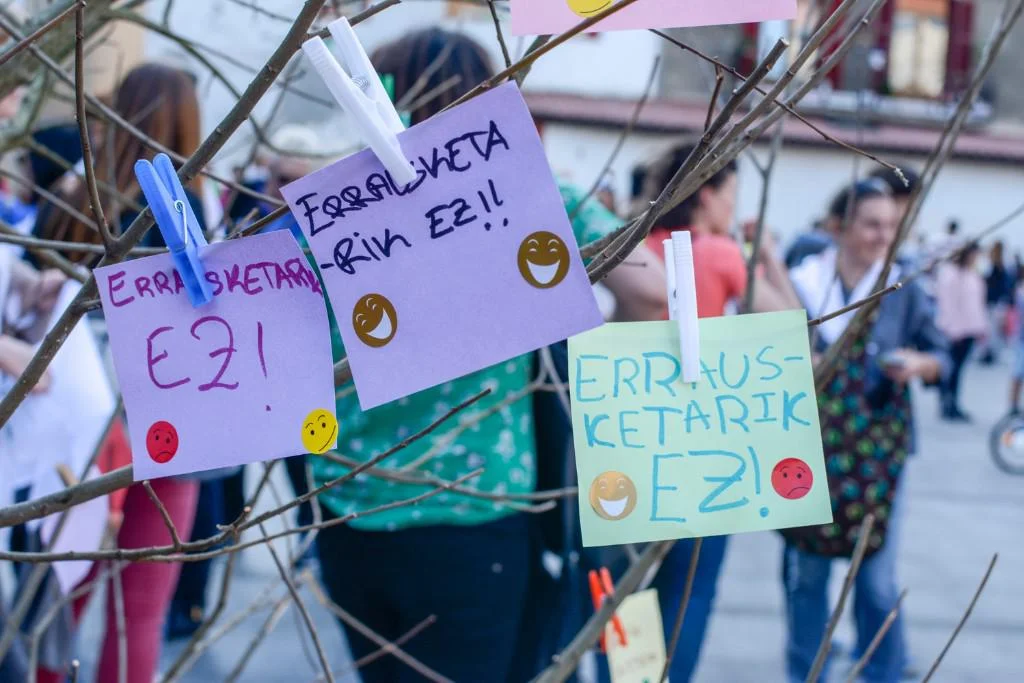 ERRAUSKETARIK
EZ!
ERRAUSKETA
-RIK EZ!!
ERRAUS-
KETARIK
EZ!